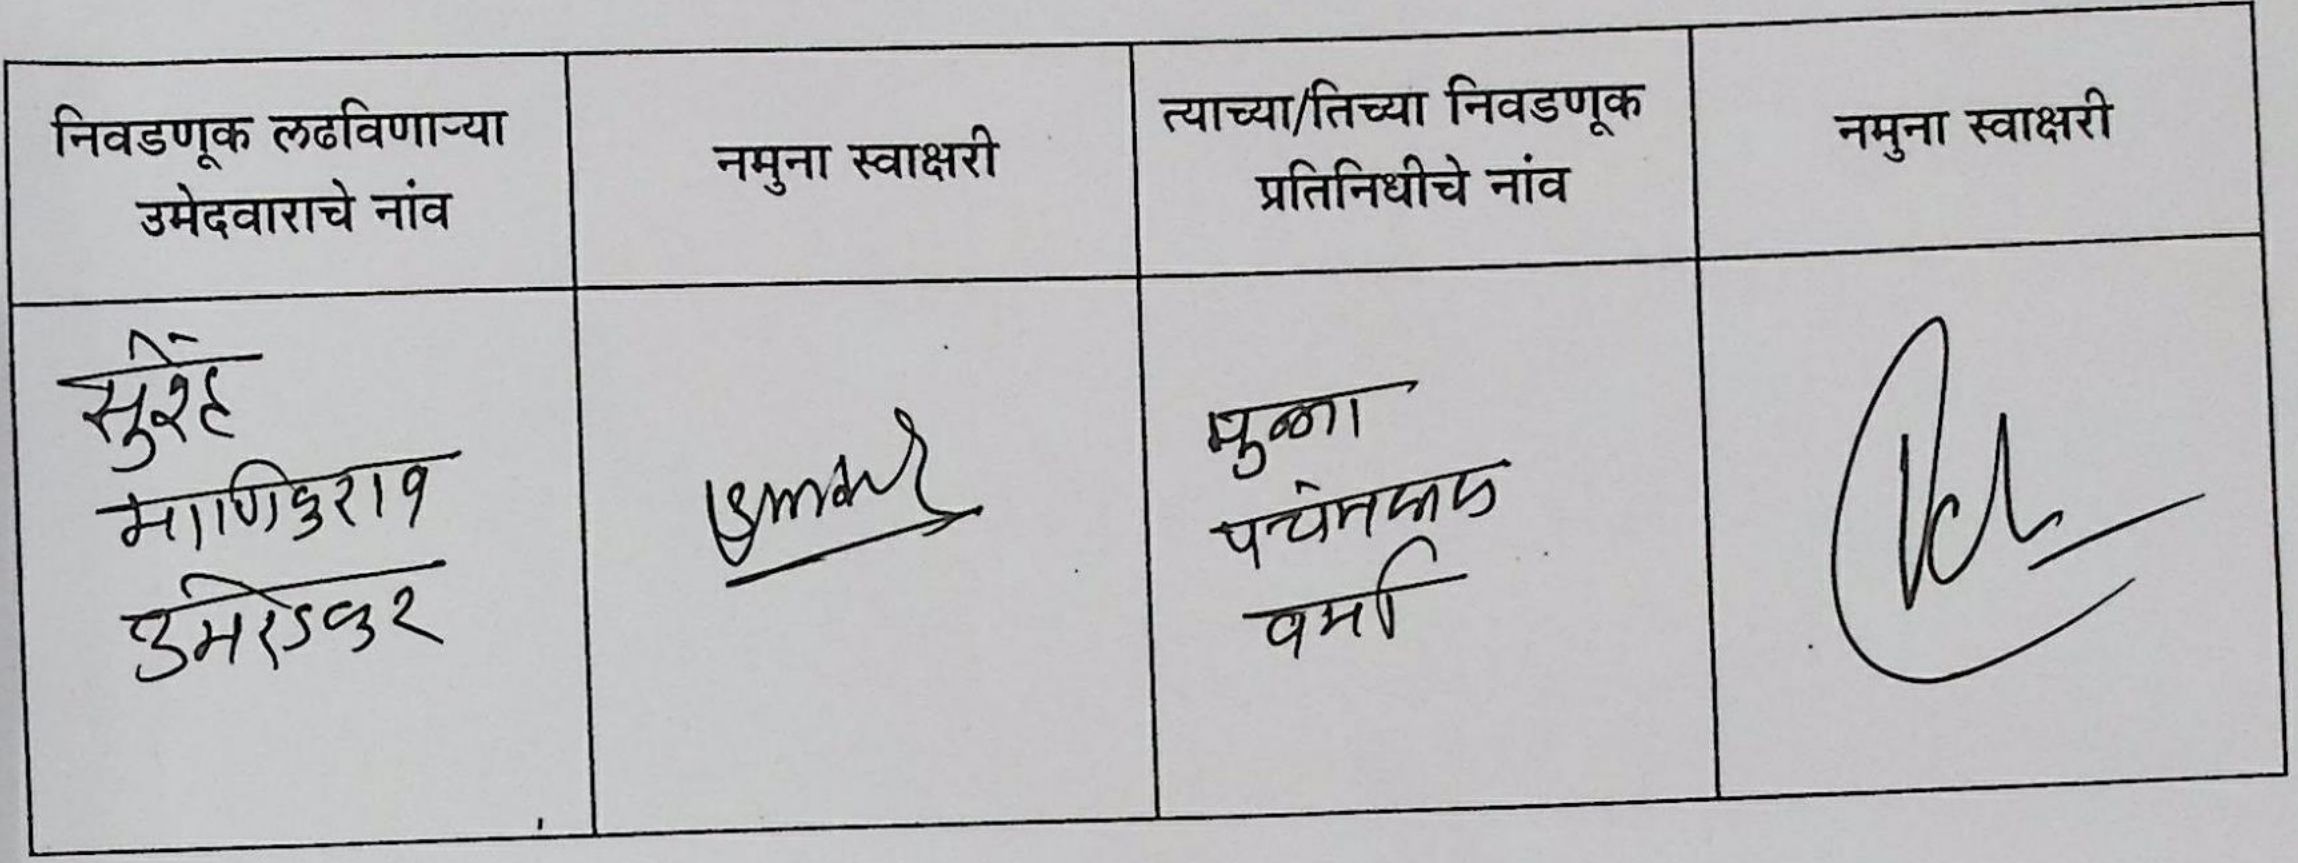 निवडणूक लढविणाऱ्या
उमेदवाराचे नांव
नमुना स्वाक्षरी
त्याच्या/तिच्या निवडणूक
प्रतिनिधीचे नांव
नमुना स्वाक्षरी
माणिकराव
उमरेडकर
वर्मा